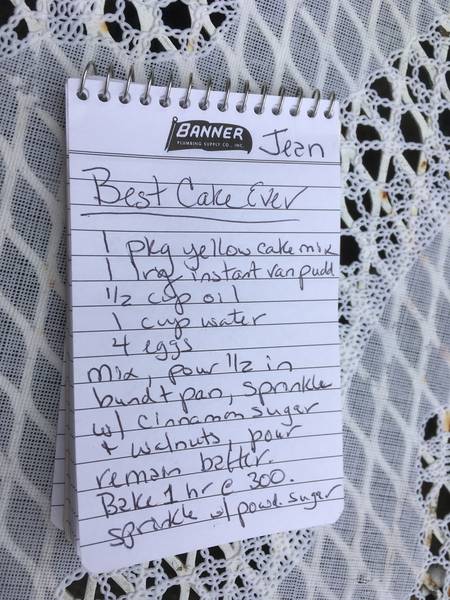 BANNER
PLUMBING SUPPLY CO., INC.
Jean
Best Cake Ever
1 pkg yellow cake mix
1 lrg instant van pudd
1/2 cup oil
1 cup water
4 eggs
mix, pour 1/2 in
bundt pan, sprinkle
w/ cinnamon sugar
+ walnuts, pour
remain batter.
Bake 1 hr @ 300.
sprinkle w/ powd. sugar